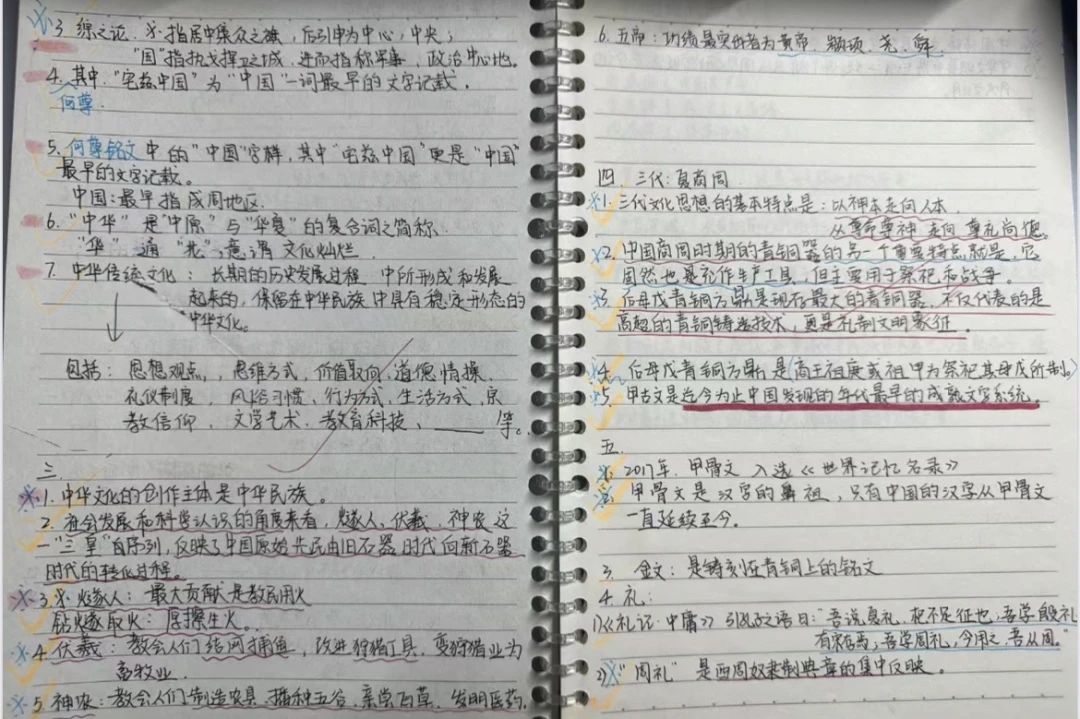 3. 综之论 指居中集众之族,后引申为中心,中央;
"国"指执戈捍卫之城,进而指称军事、政治中心地。
4. 其中,"宅兹中国"为"中国"一词最早的文字记载。
何尊
5. 何尊铭文中的"中国"字样,其中"宅兹中国"更是"中国"
最早的文字记载。
中国:最早指成周地区.
6. "中华"是"中原"与"华夏"的复合词之简称.
"华"通"花",意谓文化灿烂.
7. 中华传统文化:长期的历史发展过程中所形成和发展
起来的,保留在中华民族中具有稳定形态的
中华文化。
包括:思想观点,思维方式,价值取向,道德情操,
礼仪制度,风俗习惯,行为方式,生活方式,宗
教信仰,文学艺术,教育科技,____等。
三.
1. 中华文化的创作主体是中华民族。
2. 社会发展和科学认识的角度来看,燧人、伏羲、神农这
一"三皇"的序列,反映了中国原始先民由旧石器时代向新石器
时代的转化过程。
3. 燧人:最大贡献是教民用火
钻燧取火:摩擦生火。
4. 伏羲:教会人们结网捕鱼,改进狩猎工具,变狩猎业为
畜牧业.
5. 神农:教会人们制造农具,播种五谷,亲尝百草,发明医药.
6. 五帝:功绩最突出者为黄帝、颛顼、尧、舜.
四 三代:夏商周.
1. 三代文化思想的基本特点是:以神本走向人本,
从尊命尊神走向尊礼尚德。
2. 中国商周时期的青铜器的另一个重要特点就是,它
固然也是制作生产工具,但主要用于祭祀和战争。
3. 后母戊青铜方鼎是现存最大的青铜器,不仅代表的是
高超的青铜铸造技术,更是礼制文明象征。
4. 后母戊青铜方鼎是(商王祖庚或祖甲为祭祀其母戊所制。)
5. 甲古文是迄今为止中国发现的年代最早的成熟文字系统。
五.
1. 2017年,甲骨文入选《世界记忆名录》
2. 甲骨文是汉字的鼻祖,只有中国的汉字从甲骨文
一直延续至今。
3. 金文:是铸刻在青铜上的铭文
4. 礼:
1)《礼记·中庸》引孔子语曰:"吾说夏礼,杞不足征也;吾学殷礼,
有宋存焉;吾学周礼,今用之,吾从周。"
2)"周礼"是西周奴隶制典章的集中反映。